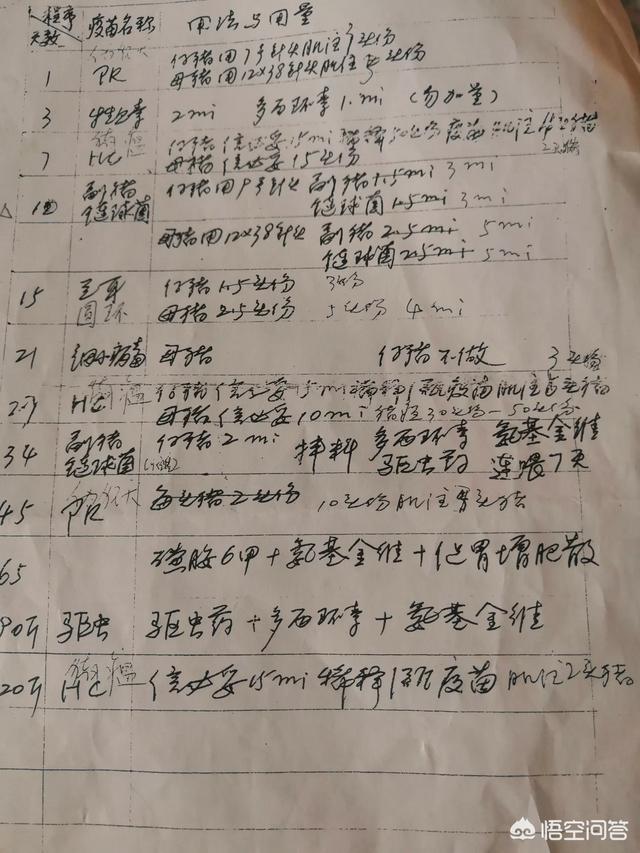 程序 疫苗名称 用法与用量
天数
伪狂犬 仔猪用7号针头肌注3头份
1 PR 母猪用12×38针头肌注5头份
3 牲血素 2ml 多西环素 1.ml (勿加量)
猪瘟 仔猪 15ml 稀释50头份疫苗肌注
7 HC 母猪 15头份 2头猪
△ 10 副猪 仔猪用9号针头 副猪1.5ml 3ml
链球菌 链球菌1.5ml 3ml
母猪用12×38针头 副猪2.5ml 5ml
链球菌2.5ml 5ml
15 蓝耳 仔猪1.5头份 3头份
圆环 母猪2.5头份 5头份 4ml
21 细小病毒 母猪 仔猪不做 3头份
猪瘟 仔猪 15ml 稀释1瓶疫苗肌注
23 HC 母猪 10ml 30头份-50头份
34 副猪 仔猪2ml 拌料 多西环素 氨基金维
链球菌 驱虫药 连喂7天
伪狂犬
45 PR 每头猪2头份 10头份肌注 头猪
65 磺胺6甲+氨基金维+健胃增肥散
90斤 驱虫 驱虫药+多西环素+氨基金维
猪瘟
20斤 HC 15ml 稀释1瓶疫苗肌注2头猪
悟空问答